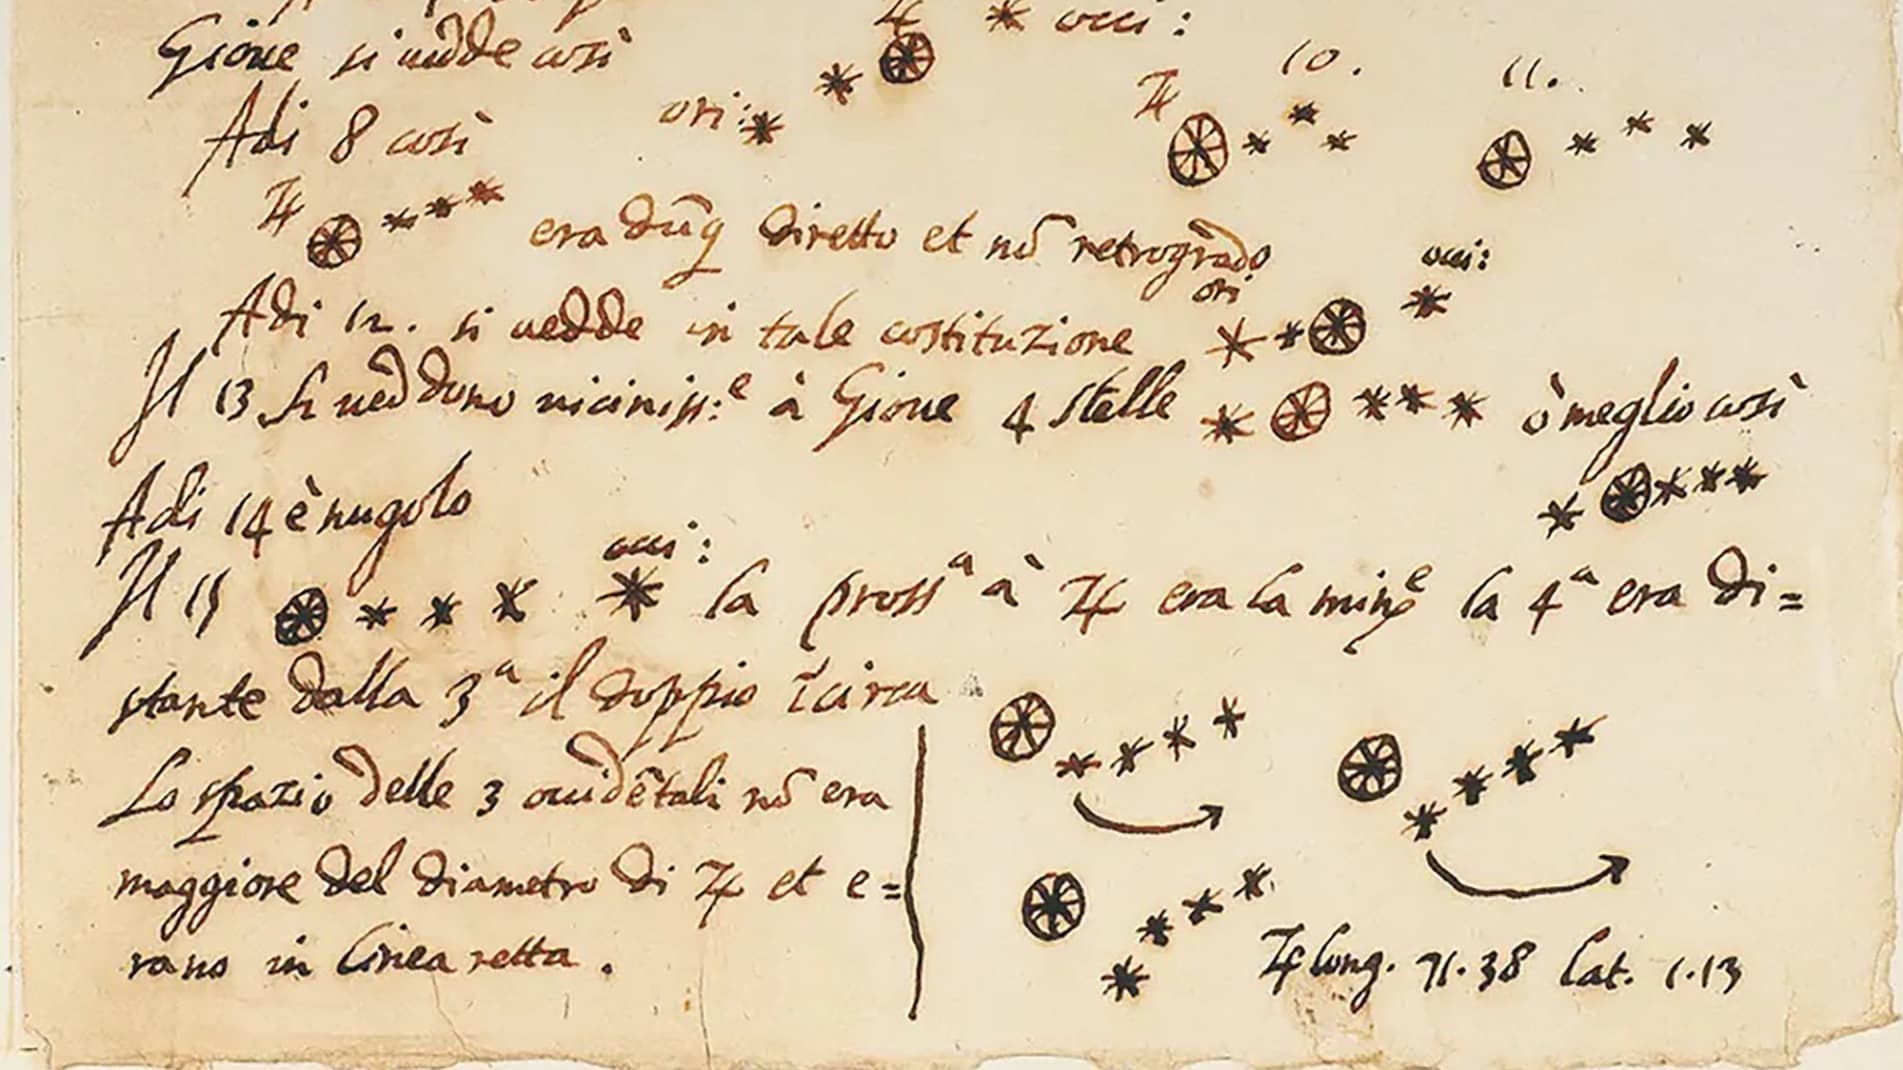 Gioue si uedde così
♃ * occi:
ori: *
10.
11.
♃
Adi 8 così
♃
era dūq diretto et nō retrogrado
Adi 12. si uedde in tale costituzione
ori
occi:
Il 13 si ueddono uiciniss:e à Gioue 4 stelle ò meglio così
Adi 14 è nugolo
Il 15
occi:
la prossa à ♃ era la mine la 4a era di=
stante dalla 3a il doppio ī circa
Lo spazio delle 3 occidētali nō era
maggiore del diametro di ♃ et e=
rano in linea retta.
♃ long. 71.38 lat. 1.13